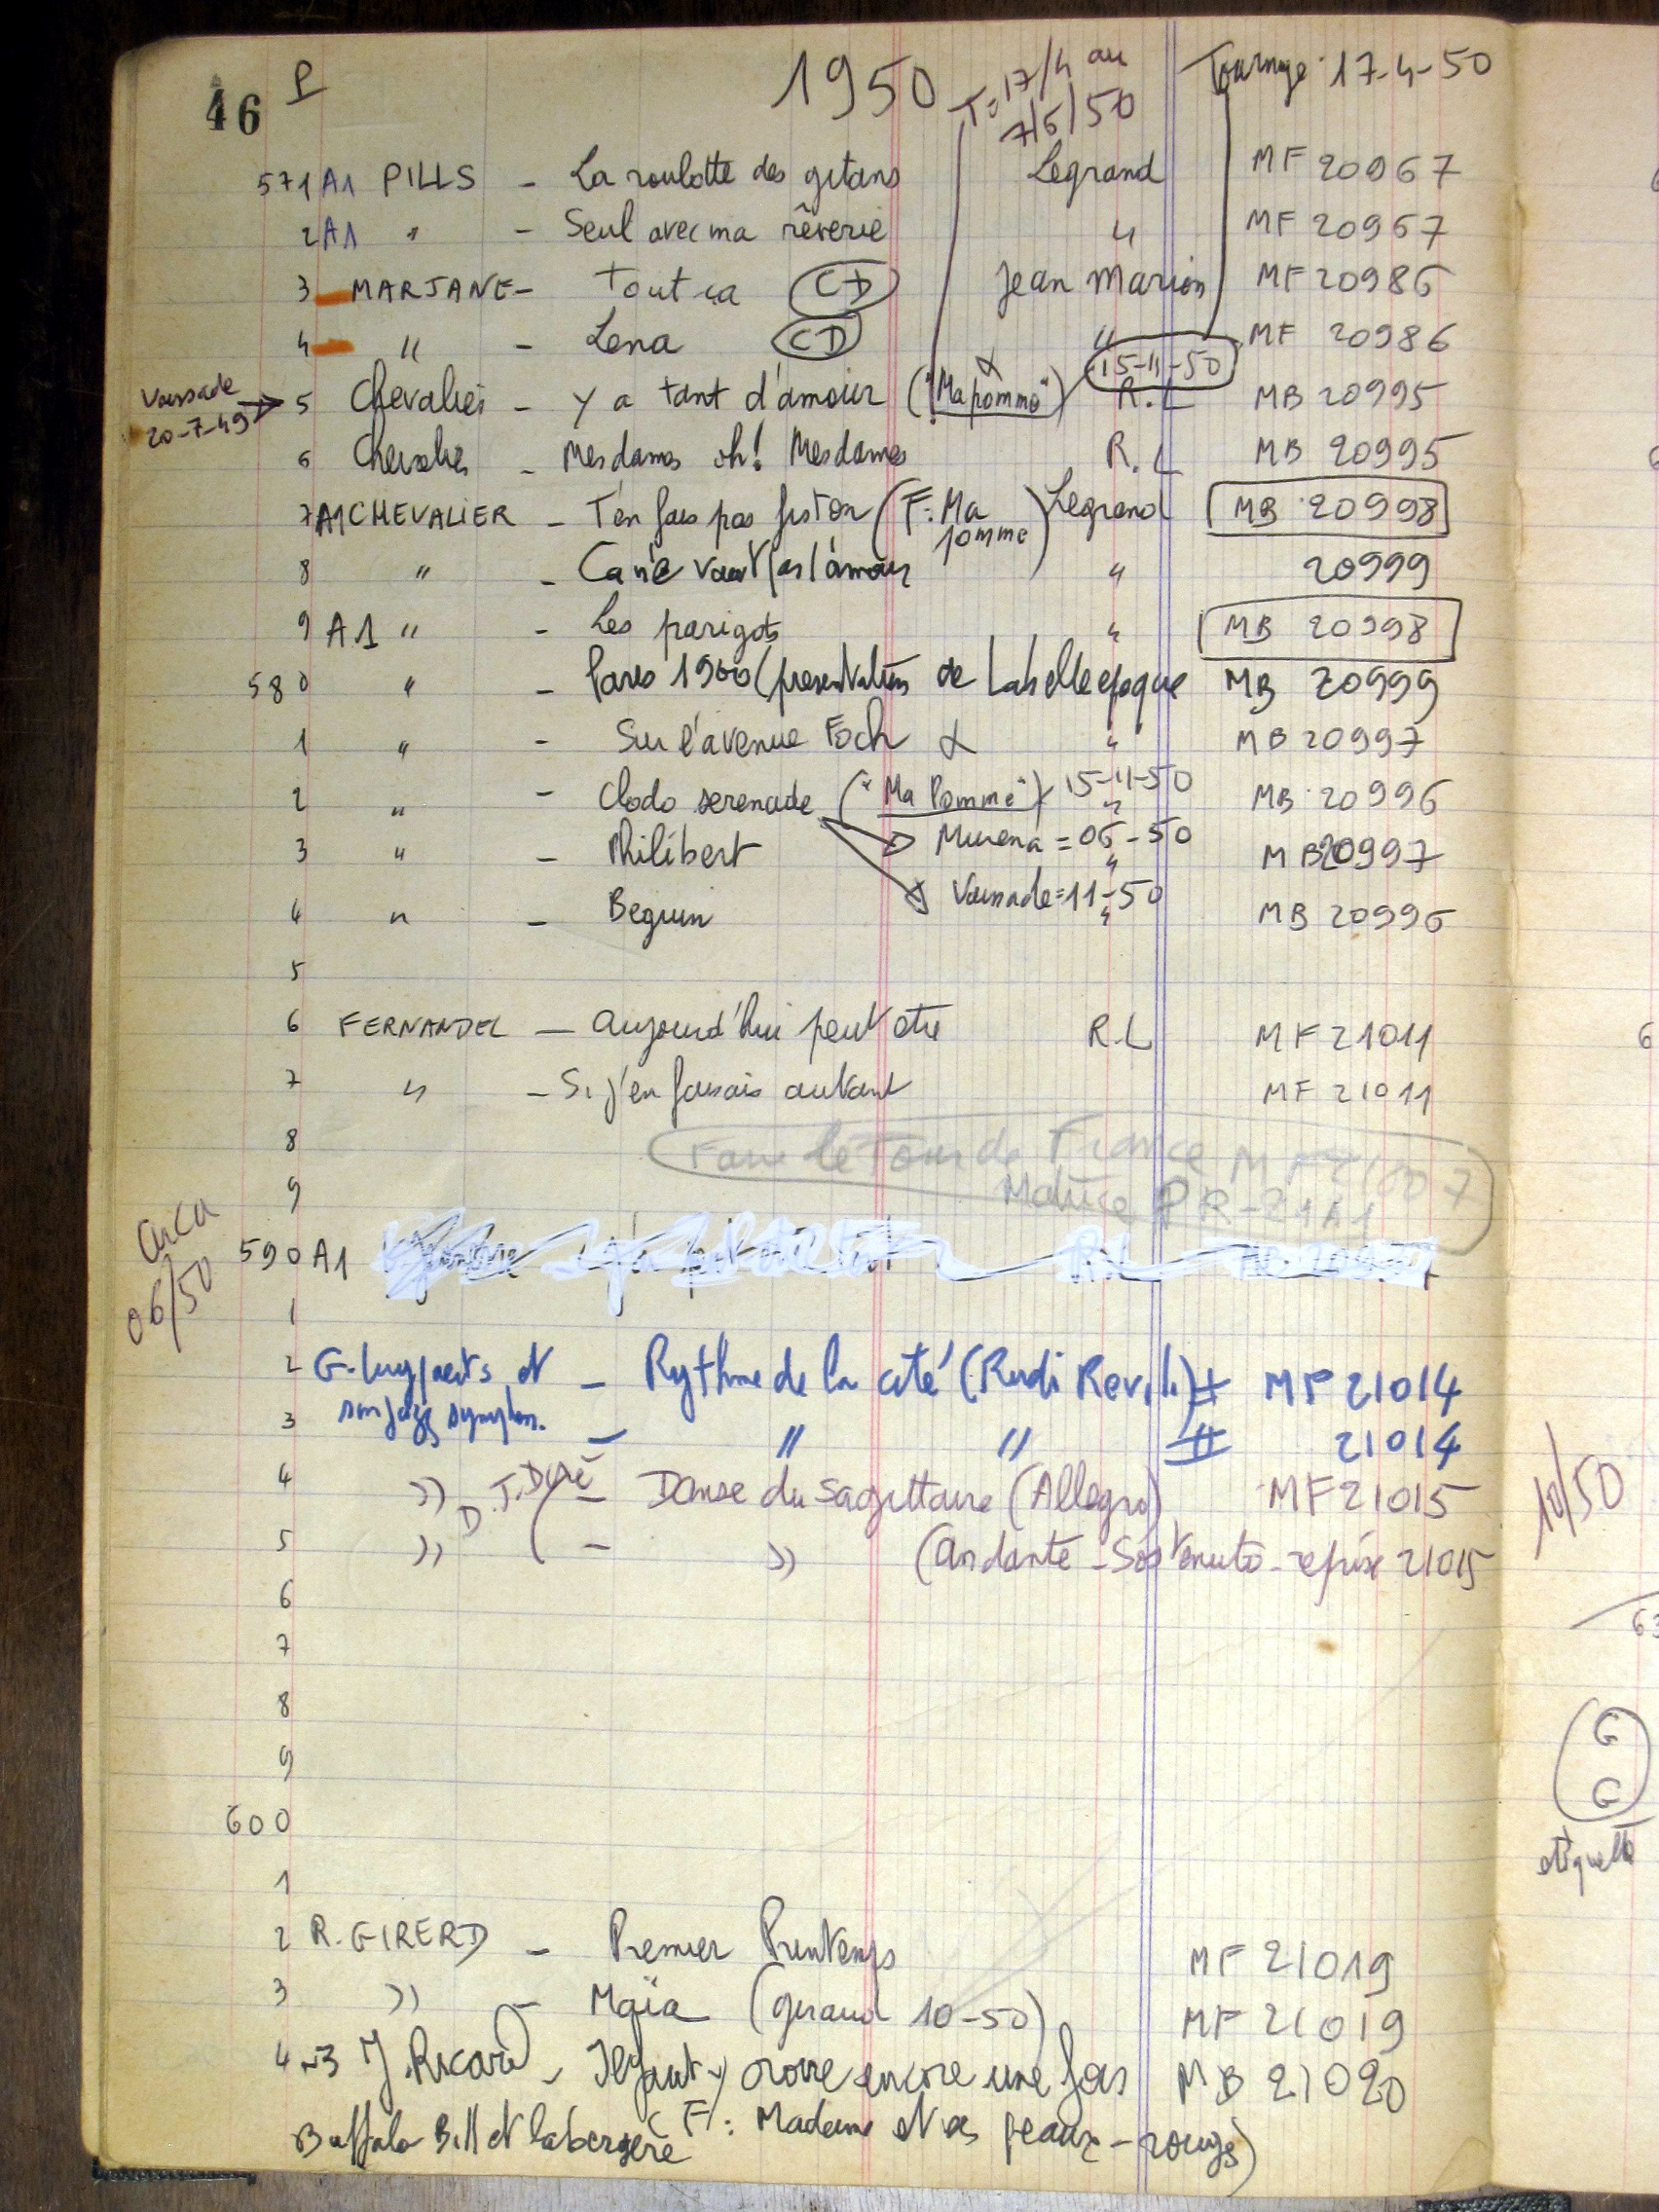 46 P 1950 T=17/4 au 7/6/50 Tournage 17-4-50
571 A1 PILLS - La roulotte des gitans Legrand MF 20967
2 A1 " - Seul avec ma rêverie " MF 20967
3 MARJANE - Tout ça (CD) Jean Marion MF 20986
4 " - Lena (CD) " MF 20986
Vaissade 20-7-49 → 5 Chevalier - Y a tant d'amour ("Ma pomme") 15-11-50 R.L MB 20995
6 Chevalier - Mesdames oh! Mesdames R.L MB 20995
7 A1 CHEVALIER - T'en fais pas fiston (F: Ma Pomme) Legrand MB 20998
8 " - Ca n'e vaut pas l'amour " 20999
9 A1 " - Les parigots " MB 20998
580 " - Paris 1900 (presentation de La belle epoque MB 20999
1 " - Sur l'avenue Foch " MB 20997
2 " - Clodo serenade ("Ma Pomme") 15-11-50 " MB 20996
3 " - Philibert Murena = 06-50 " MB 20997
4 " - Beguin Vaissade = 11-50 " MB 20996
5
6 FERNANDEL - aujourd'hui peut etre R.L MF 21011
7 " - Si j'en faisais autant MF 21011
8 Faire le Tour de France MF 21007
9 Matrice PR-21A1
circa 06/50
590 A1
1
2 G. Luypaerts et - Rythme de la cité (Rudi Revil) I MF 21014
3 son jazz symphon. - " " II 21014
4 " - Danse du Sagittaire (Allegro) MF 21015
5 " - " (andante - Sostenuto - reprise 21015
6
7
8
9
600
1
2 R. GIRERD - Premier Printemps MF 21019
3 " - Maïa (geraud 10-50) MF 21019
4 J. Ricard - Il faut y croire encore une fois MB 21020
Buffalo Bill et la bergère (F: Madame et ses peaux-rouges)
10/50
G
G
etiquette